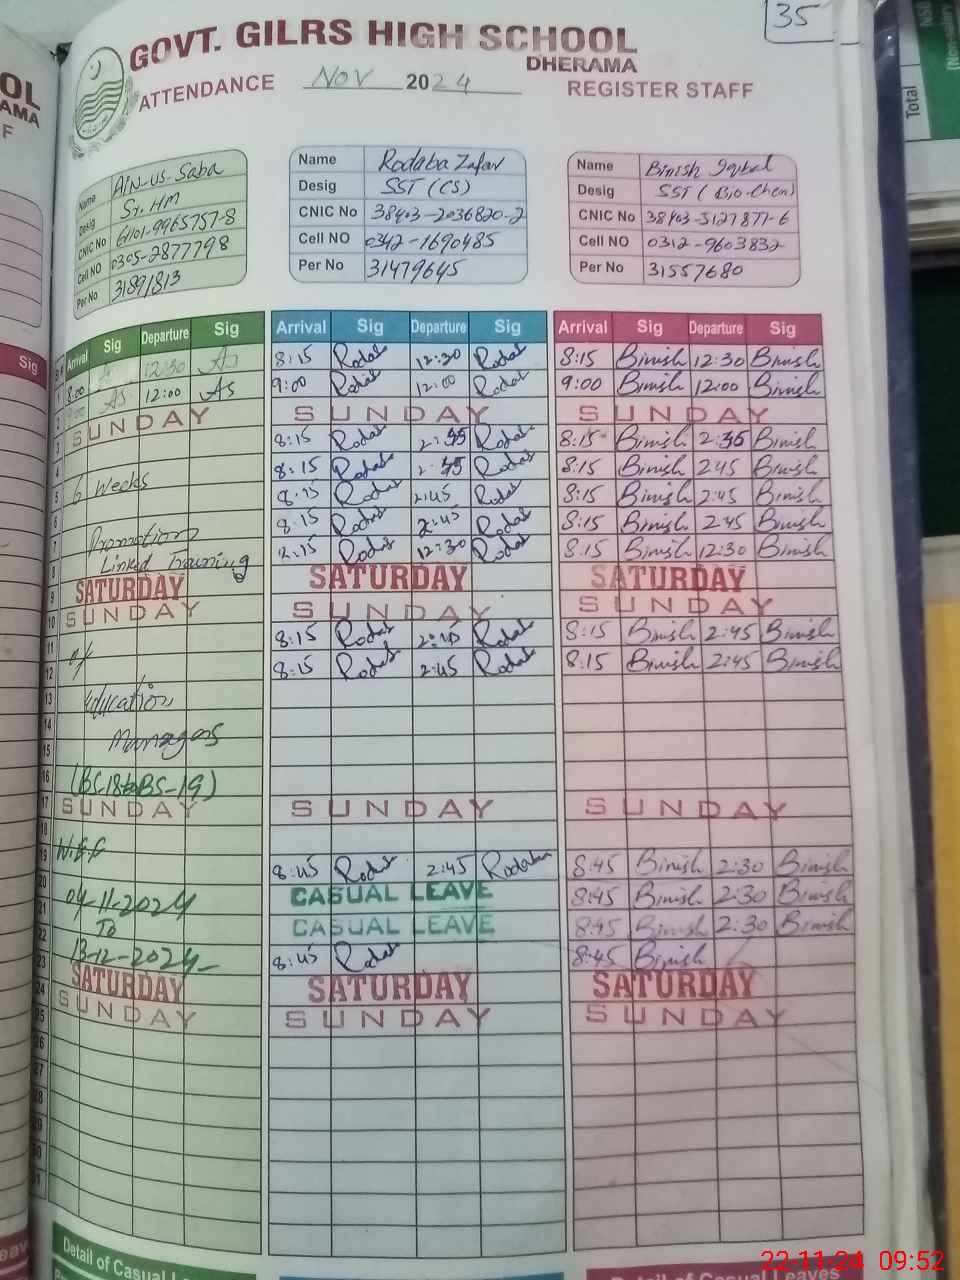 35
GOVT. GILRS HIGH SCHOOL
DHERAMA
ATTENDANCE Nov 2024 REGISTER STAFF
Name AiN-us-Saba
Desig Sr. HM
CNIC No 61101-9965757-8
Cell NO 0305-2877798
Per No 31891813
Name Rodaba Zafar
Desig SST (CS)
CNIC No 38403-2036820-2
Cell NO 0342-1690485
Per No 31479645
Name Binish Iqbal
Desig SST (Bio-Chem)
CNIC No 38403-5127877-6
Cell NO 0312-9603832
Per No 31557680
Arrival Sig Departure Sig Arrival Sig Departure Sig Arrival Sig Departure Sig
1 8:00 12:30 As 8:15 Rodab 12:30 Rodab 8:15 Binish 12:30 Binish
2 9:00 As 12:00 As 9:00 Rodab 12:00 Rodab 9:00 Binish 12:00 Binish
3 SUNDAY SUNDAY SUNDAY
4 8:15 Rodab 2:45 Rodab 8:15 Binish 2:45 Binish
5 6 Weeks 8:15 Rodab 2:45 Rodab 8:15 Binish 2:45 Binish
6 8:15 Rodab 2:45 Rodab 8:15 Binish 2:45 Binish
7 Promotion 8:15 Rodab 2:45 Rodab 8:15 Binish 2:45 Binish
8 Linked Training 8:15 Rodab 12:30 Rodab 8:15 Binish 12:30 Binish
9 SATURDAY SATURDAY SATURDAY
10 SUNDAY SUNDAY SUNDAY
11 of 8:15 Rodab Rodab 8:15 Binish 2:45 Binish
12 8:15 Rodab 2:45 Rodab 8:15 Binish 2:45 Binish
13 Education
14
15 Managers
16 (BS-18 to BS-19)
17 SUNDAY SUNDAY SUNDAY
18
19 W.E.F 8:45 Rodab 2:45 Rodaba 8:45 Binish 2:30 Binish
20 CASUAL LEAVE 8:45 Binish 2:30 Binish
21 04-11-2024 CASUAL LEAVE 8:45 Binish 2:30 Binish
22 To 8:45 Rodab 8:45 Binish
23 13-12-2024 SATURDAY SATURDAY SATURDAY
24 SUNDAY SUNDAY SUNDAY
25
26
27
28
29
Detail of Casual
Detail of Casual Leaves
22-11-24 09:52
Sig
Total